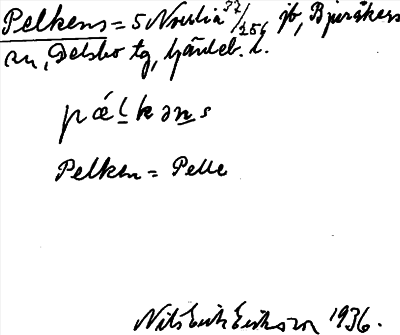 Pelkens = 5 Norrlia 37/256 jb, Bjuråkers
sn, Delsbo tg, Gävleb. l.
pǽlkəns
Pelken = Pelle
Nils Erik Eriksson 1936.